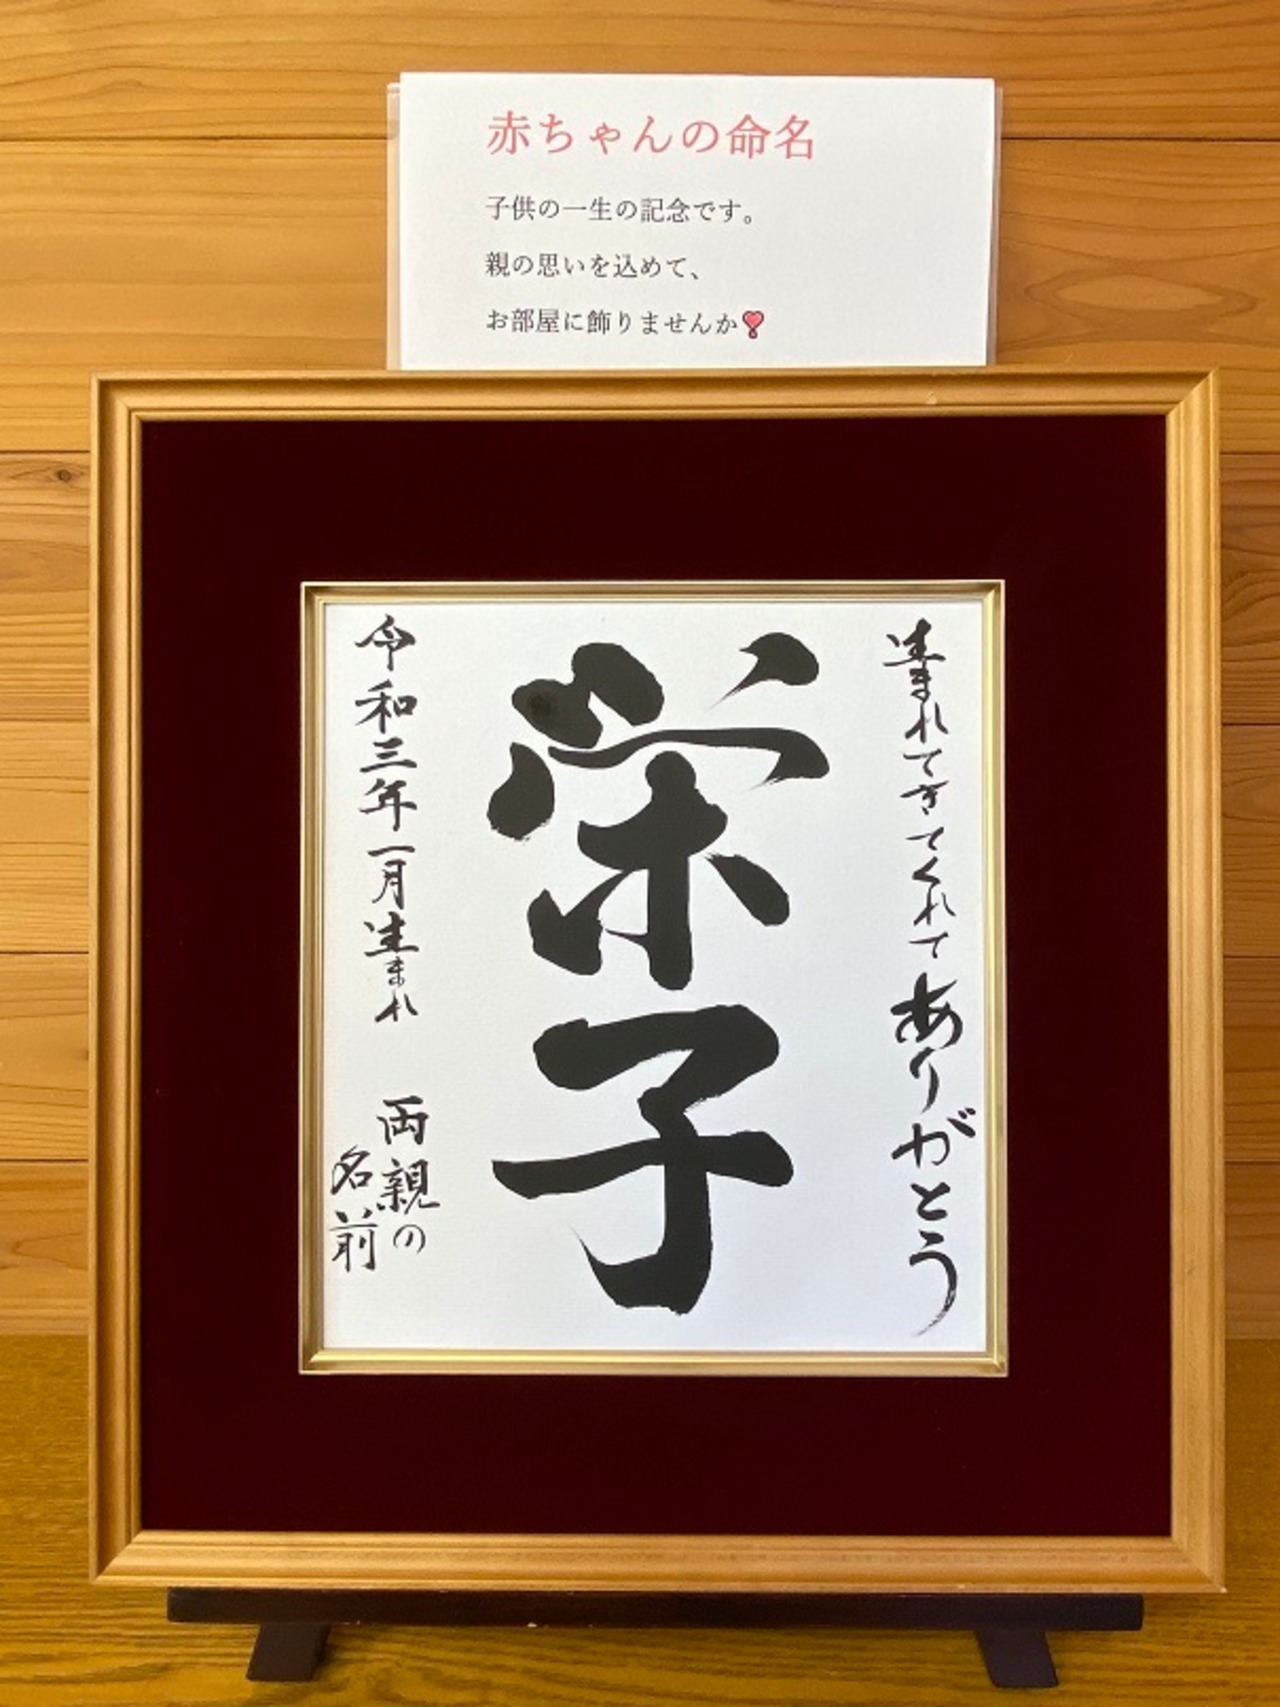 赤ちゃんの命名
子供の一生の記念です。
親の思いを込めて、
お部屋に飾りませんか❣
生まれてきてくれてありがとう
栄子
令和三年一月生まれ
両親の
名前